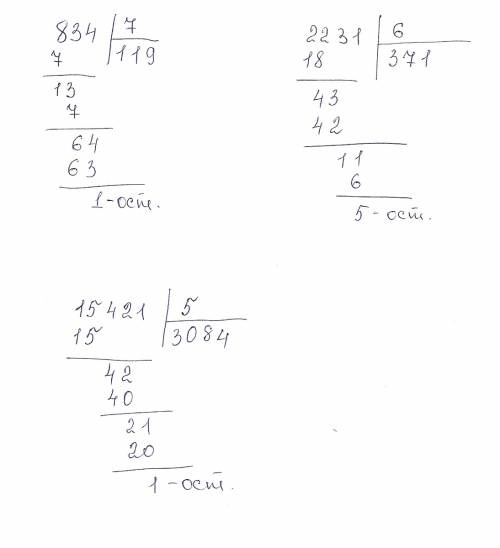 834 7
7 119
13
7
64
63
1-ост.
2231 6
18 371
43
42
11
6
5-ост.
15421 5
15 3084
42
40
21
20
1-ост.